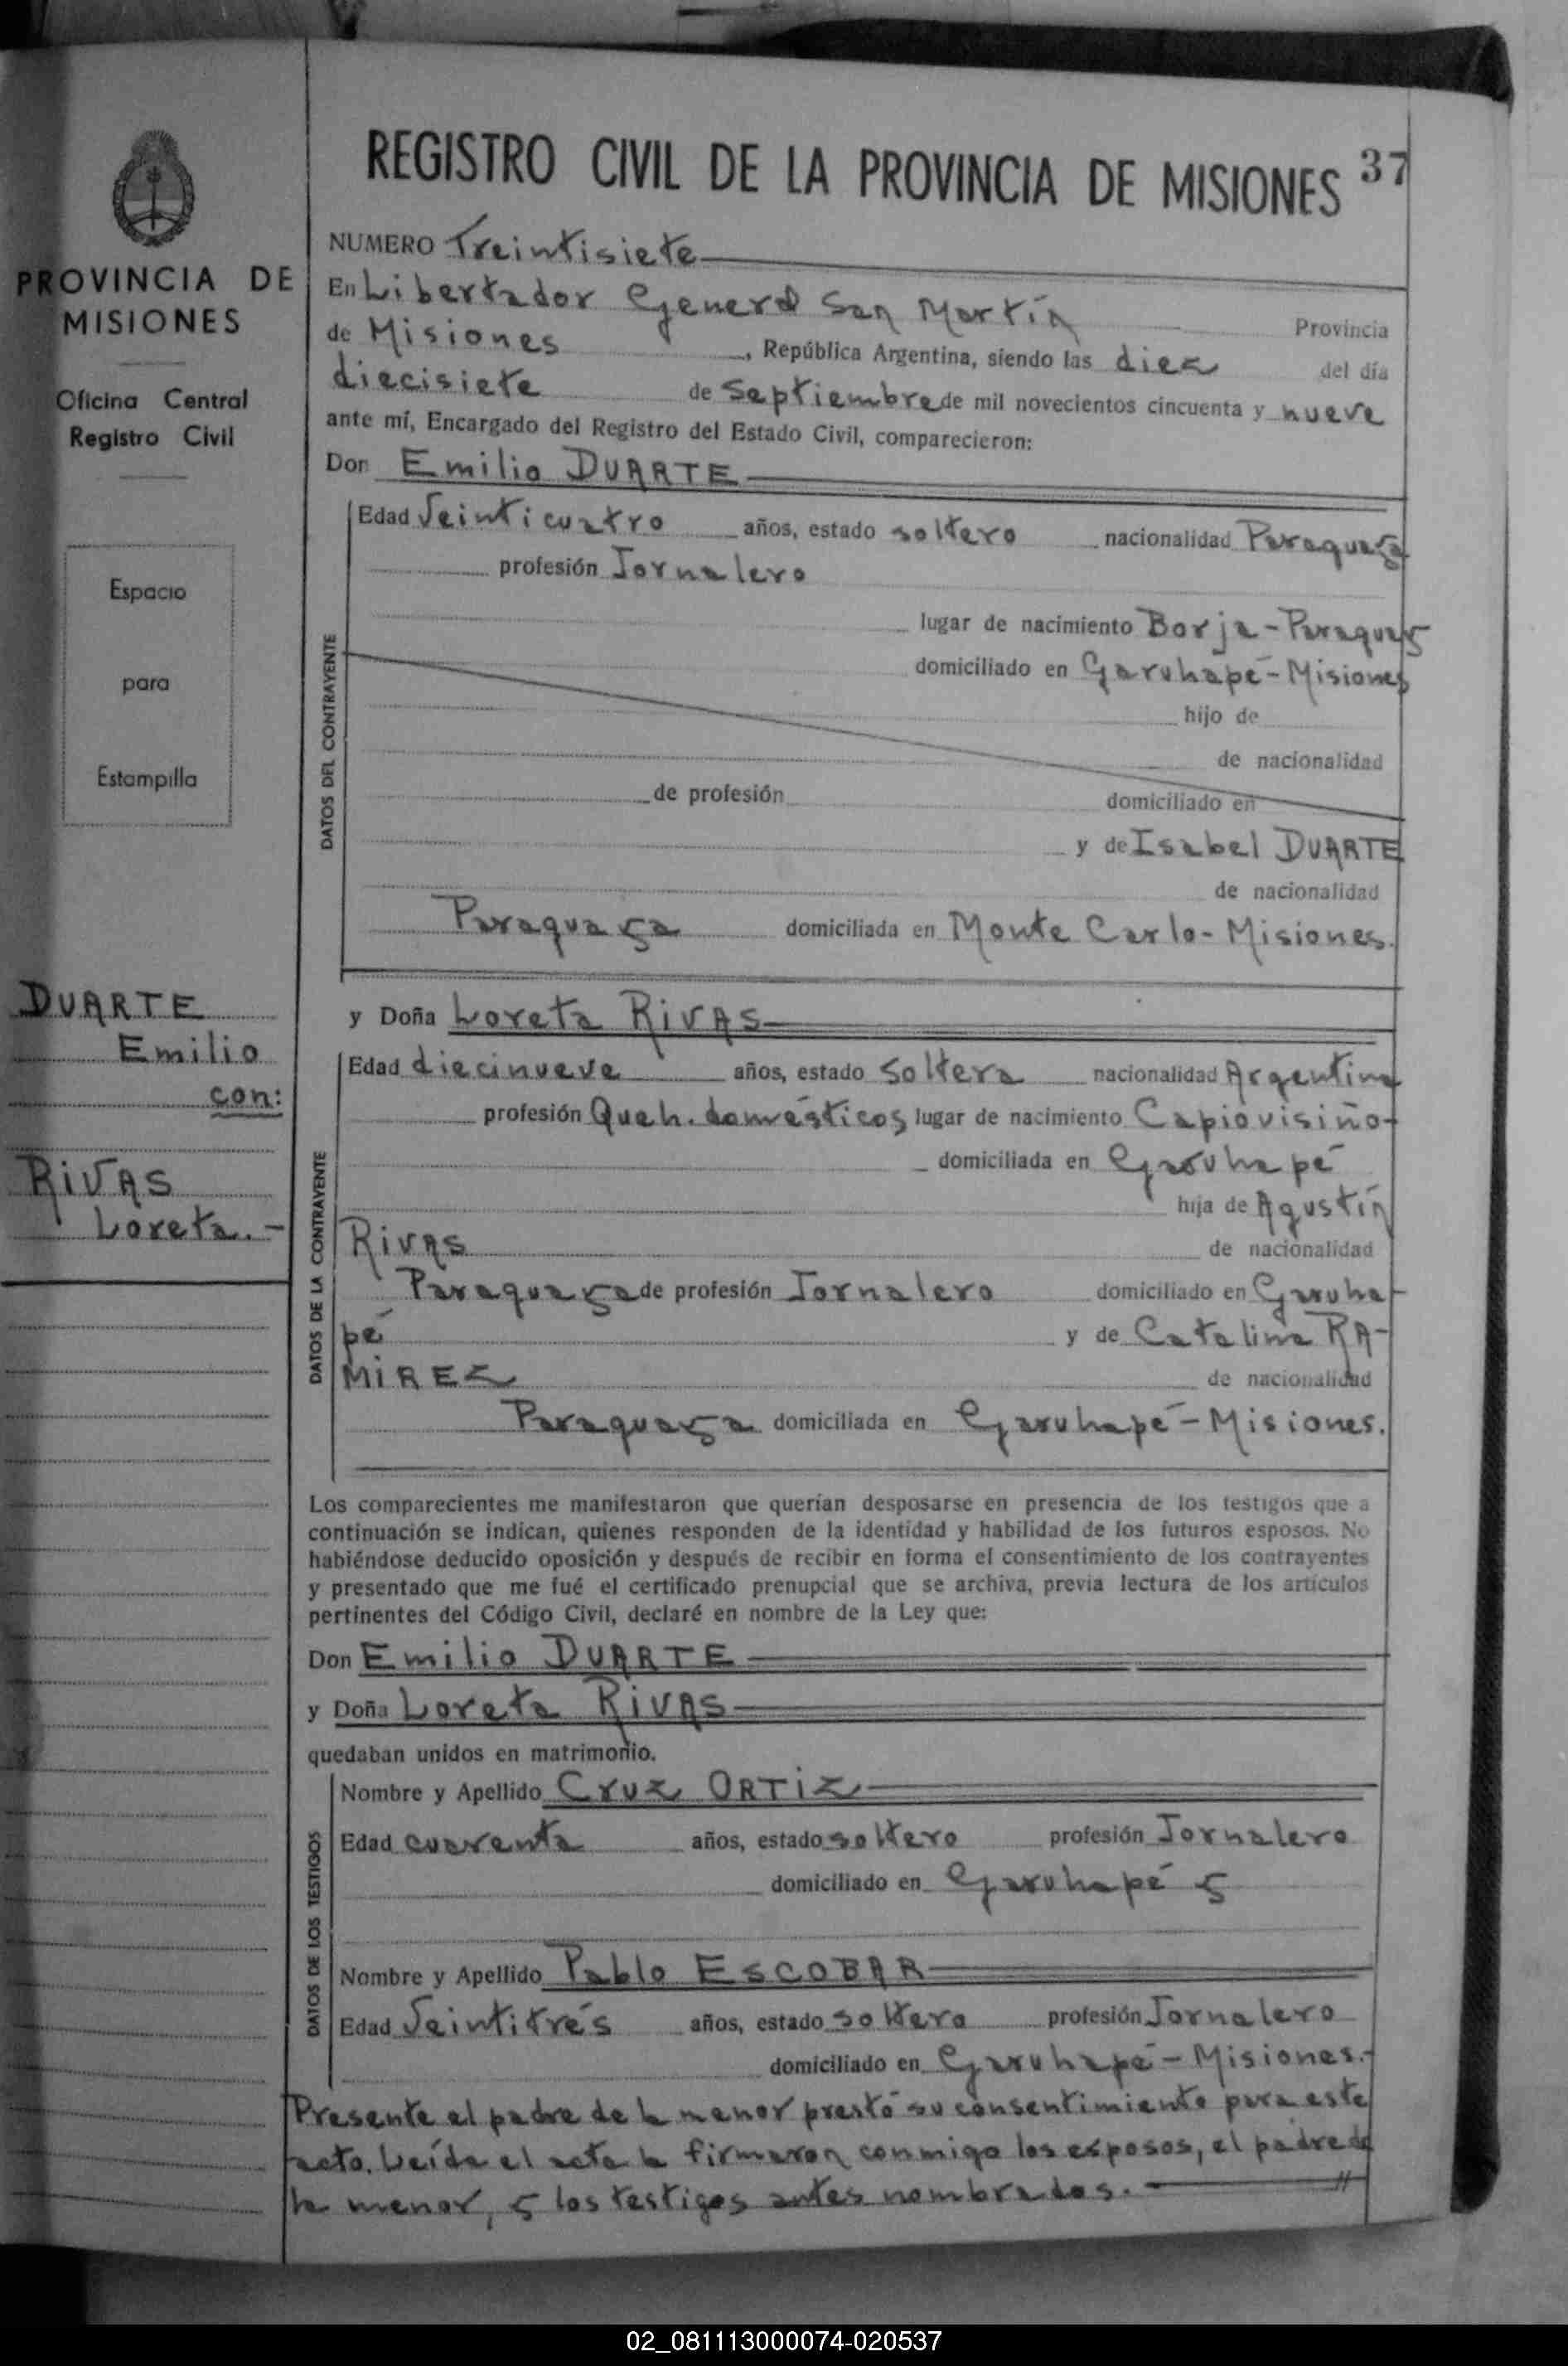 PROVINCIA DE
MISIONES
Oficina Central
Registro Civil
Espacio
para
Estampilla
DUARTE
Emilio
con:
RIVAS
Loreta.-
REGISTRO CIVIL DE LA PROVINCIA DE MISIONES 37
NUMERO Treintisiete
En Libertador General San Martín Provincia
de Misiones, República Argentina, siendo las diez del día
diecisiete de Septiembre de mil novecientos cincuenta y nueve
ante mí, Encargado del Registro del Estado Civil, comparecieron:
Don Emilio DUARTE
DATOS DEL CONTRAYENTE
Edad Veinticuatro años, estado soltero nacionalidad Paraguaya
profesión Jornalero
lugar de nacimiento Borja-Paraguay
domiciliado en Garuhapé-Misiones
hijo de
de nacionalidad
de profesión domiciliado en
y de Isabel DUARTE
de nacionalidad
Paraguaya domiciliada en Monte Carlo-Misiones.
y Doña Loreta RIVAS
DATOS DE LA CONTRAYENTE
Edad diecinueve años, estado Soltera nacionalidad Argentina
profesión Queh. domésticos lugar de nacimiento Capiovisiño-
domiciliada en Garuhapé
hija de Agustín
RIVAS de nacionalidad
Paraguaya de profesión Jornalero domiciliado en Garuha-
pé y de Catalina RA-
MIREZ de nacionalidad
Paraguaya domiciliada en Garuhapé-Misiones.
Los comparecientes me manifestaron que querían desposarse en presencia de los testigos que a
continuación se indican, quienes responden de la identidad y habilidad de los futuros esposos. No
habiéndose deducido oposición y después de recibir en forma el consentimiento de los contrayentes
y presentado que me fué el certificado prenupcial que se archiva, previa lectura de los artículos
pertinentes del Código Civil, declaré en nombre de la Ley que:
Don Emilio DUARTE
y Doña Loreta RIVAS
quedaban unidos en matrimonio.
DATOS DE LOS TESTIGOS
Nombre y Apellido Cruz ORTIZ
Edad cuarenta años, estado soltero profesión Jornalero
domiciliado en Garuhapé y
Nombre y Apellido Pablo ESCOBAR
Edad Veintitrés años, estado soltero profesión Jornalero
domiciliado en Garuhapé-Misiones.-
Presente el padre de la menor prestó su consentimiento para este
acto. Leída el acta la firmaron conmigo los esposos, el padre de
la menor, y los testigos antes nombrados. //
02_081113000074-020537